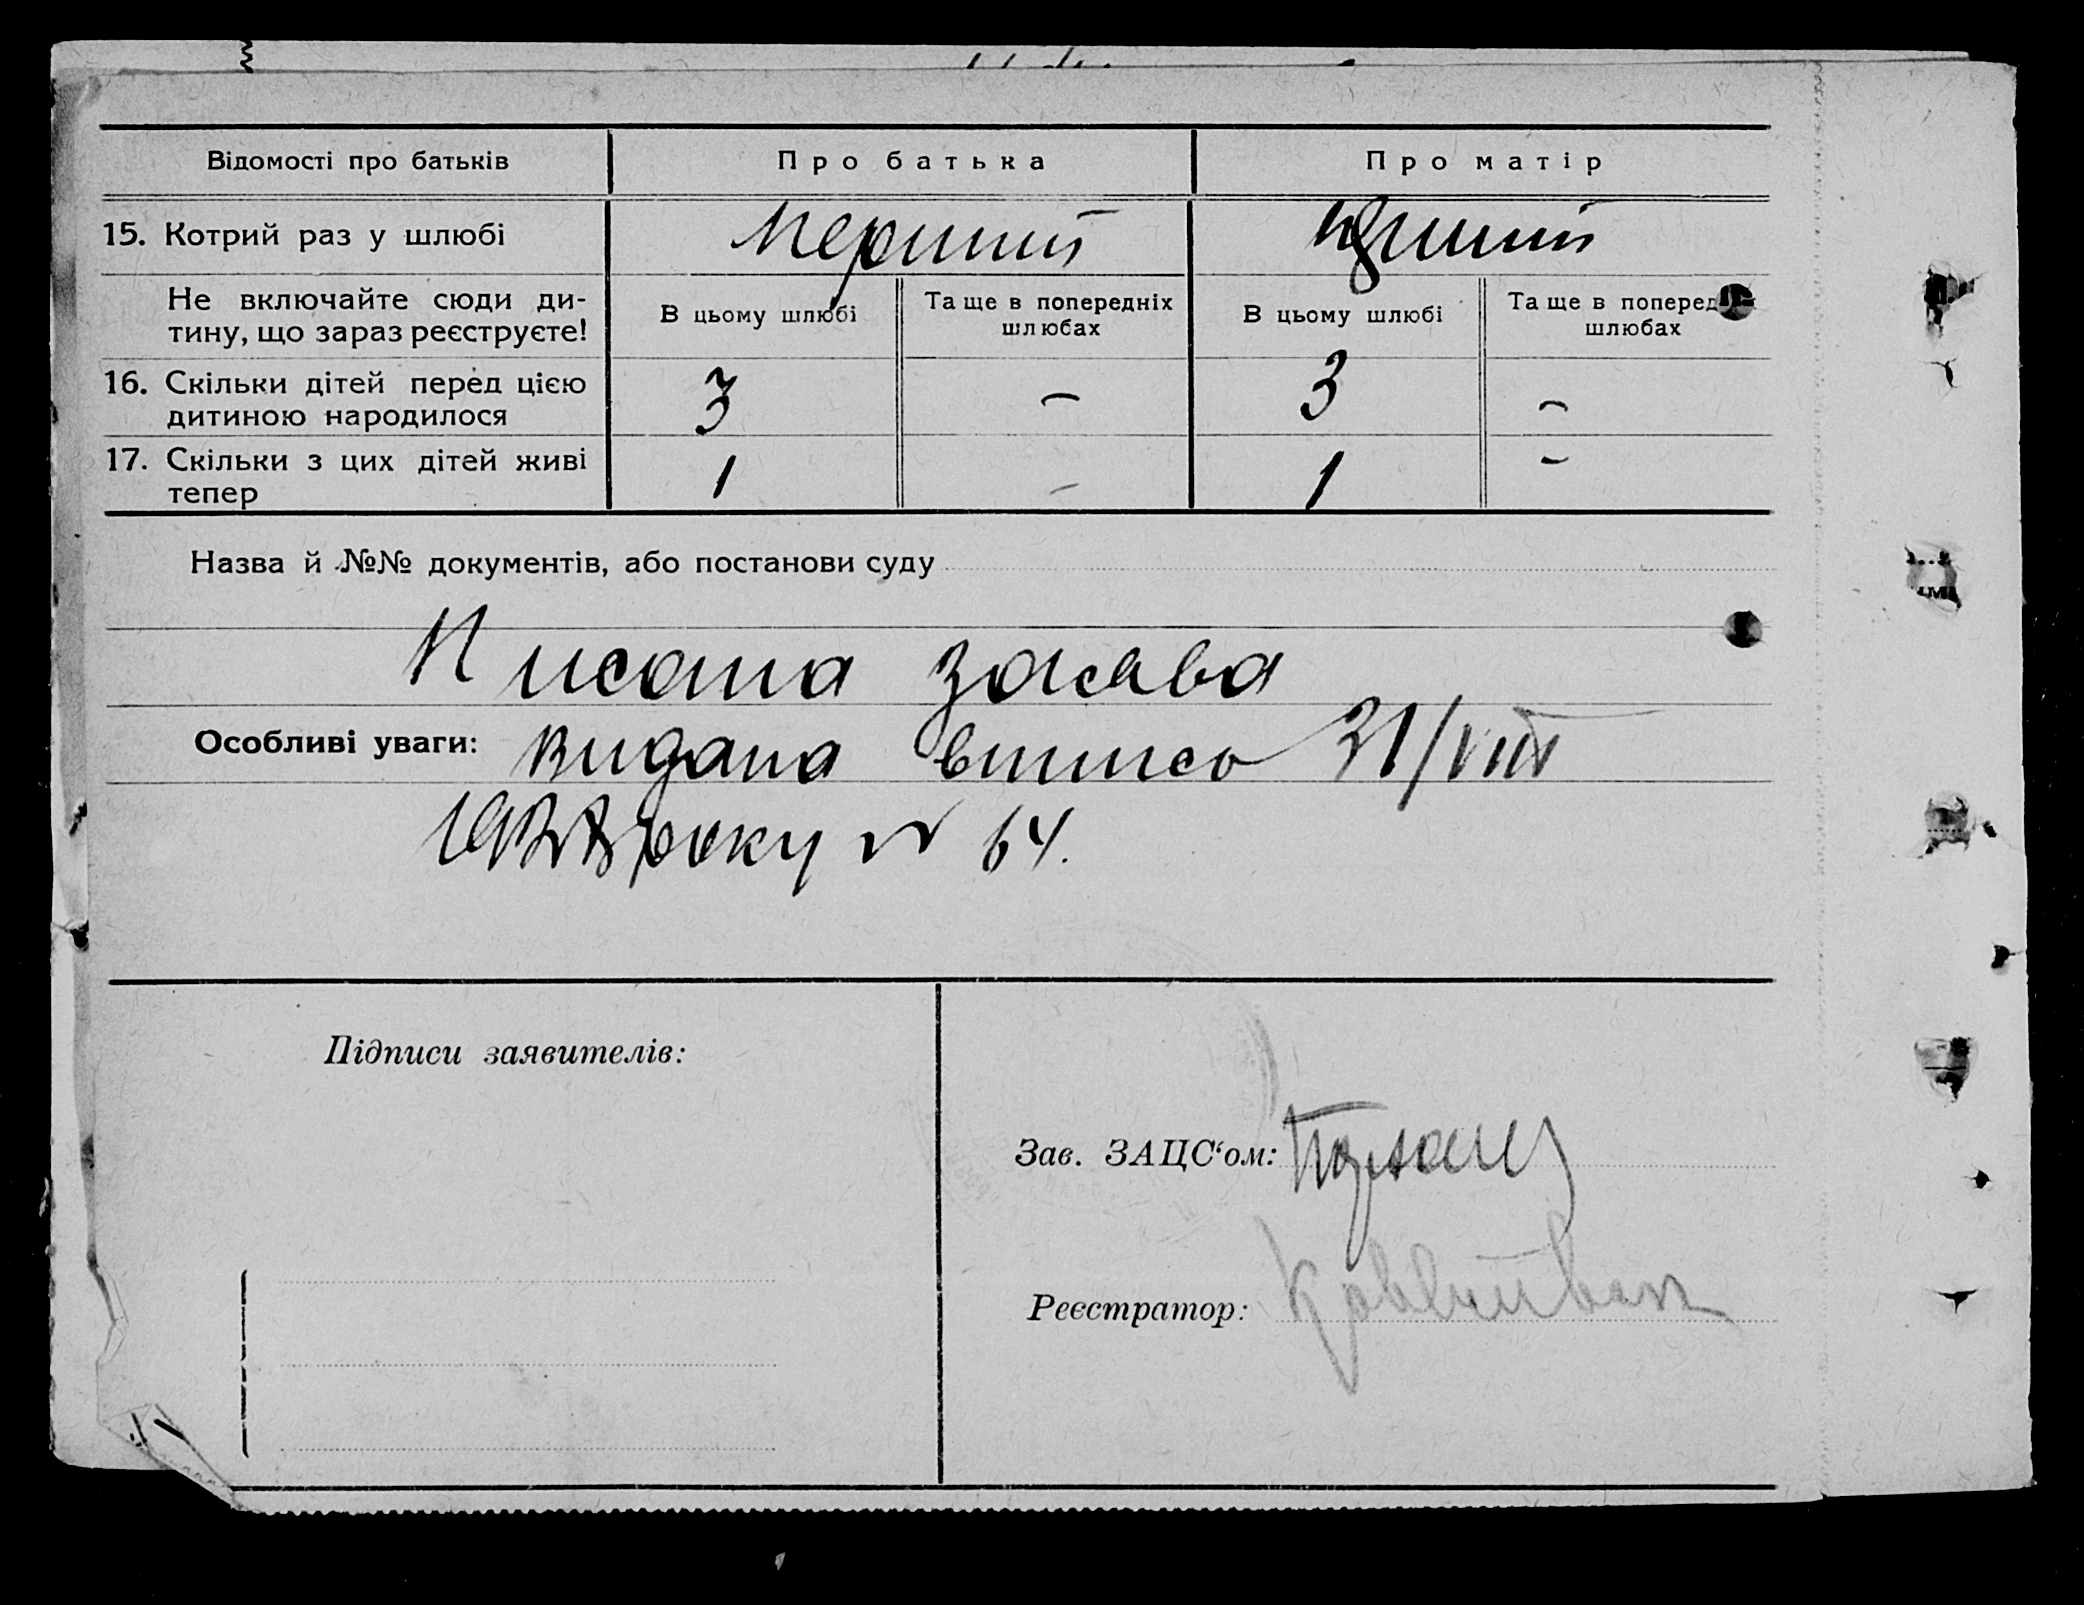 Відомості про батьків
Про батька
Про матір
15. Котрий раз у шлюбі
перший
перший
Не включайте сюди ди-
тину, що зараз реєструєте!
В цьому шлюбі
Та ще в попередніх
шлюбах
В цьому шлюбі
Та ще в поперед
шлюбах
16. Скільки дітей перед цією
дитиною народилося
3
–
3
–
17. Скільки з цих дітей живі
тепер
1
–
1
–
Назва й №№ документів, або постанови суду
Писана заява
Особливі уваги: видана випись 31/VIII
року N 64.
Підписи заявителів:
Зав. ЗАЦС‘ом:
Реєстратор: